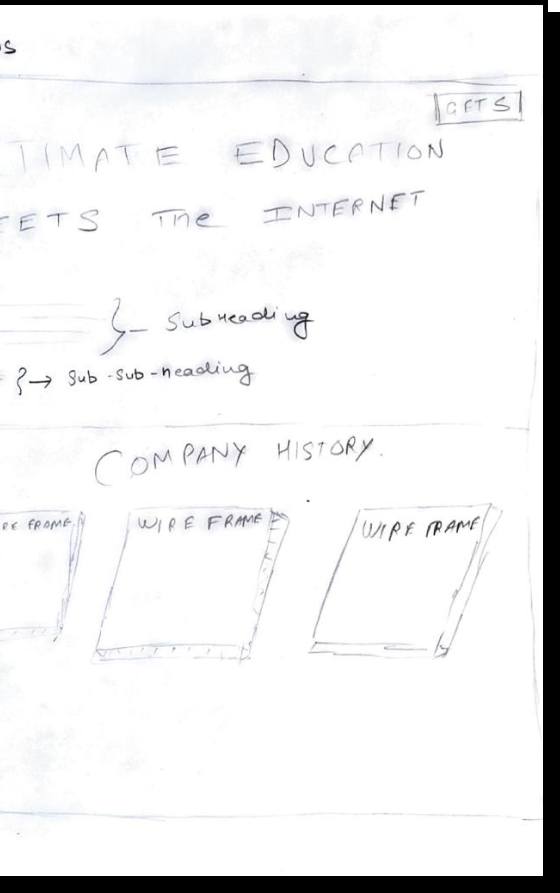 GETS
TIMATE EDUCATION
EETS The INTERNET
Subheading
Sub-Sub-heading
COMPANY HISTORY.
RE FRAME
WIRE FRAME
WIRE FRAME